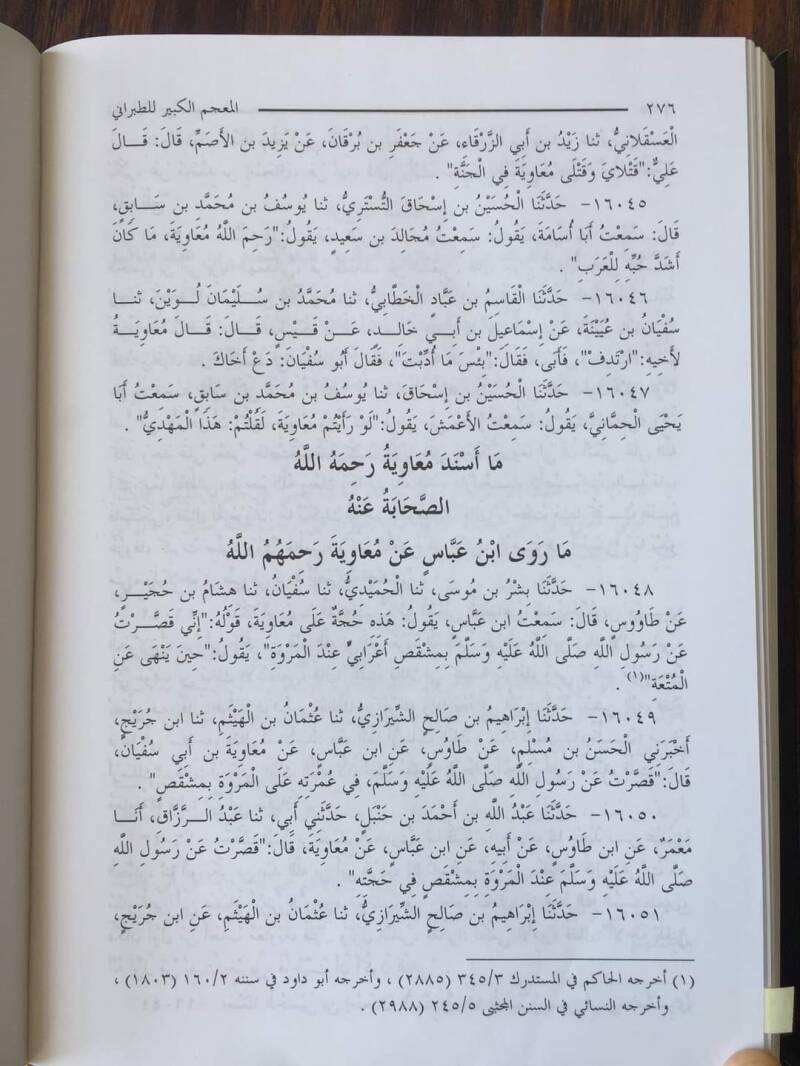 ٢٧٦ المعجم الكبير للطبراني
الْعَسْقَلانِيُّ، ثنا زَيْدُ بن أَبِي الزَّرْقَاءِ، عَنْ جَعْفَرِ بن بُرْقَانَ، عَنْ يَزِيدَ بن الأَصَمِّ، قَالَ: قَالَ
عَلِيٌّ:"قَتْلايَ وَقَتْلَى مُعَاوِيَةَ فِي الْجَنَّةِ" .
١٦٠٤٥- حَدَّثَنَا الْحُسَيْنُ بن إِسْحَاقَ التُّسْتَرِيُّ، ثنا يُوسُفُ بن مُحَمَّدِ بن سَابِقٍ،
قَالَ: سَمِعْتُ أَبَا أُسَامَةَ، يَقُولُ: سَمِعْتُ مُجَالِدَ بن سَعِيدٍ، يَقُولُ:"رَحِمَ اللَّهُ مُعَاوِيَةَ، مَا كَانَ
أَشَدَّ حُبِّهِ لِلْعَرَبِ" .
١٦٠٤٦- حَدَّثَنَا الْقَاسِمُ بن عَبَّادٍ الْخَطَّابِيُّ، ثنا مُحَمَّدُ بن سُلَيْمَانَ لُوَيْنَ، ثنا
سُفْيَانُ بن عُيَيْنَةَ، عَنْ إِسْمَاعِيلَ بن أَبِي خَالِدٍ، عَنْ قَيْسٍ، قَالَ: قَالَ مُعَاوِيَةُ
لأَخِيهِ:"ارْتَدِفْ"، فَأَبَى، فَقَالَ:"بِئْسَ مَا أُدِّبْتَ"، فَقَالَ أَبُو سُفْيَانَ: دَعْ أَخَاكَ .
١٦٠٤٧- حَدَّثَنَا الْحُسَيْنُ بن إِسْحَاقَ، ثنا يُوسُفُ بن مُحَمَّدِ بن سَابِقٍ، سَمِعْتُ أَبَا
يَحْيَى الْحِمَّانِيَّ، يَقُولُ: سَمِعْتُ الأَعْمَشَ، يَقُولُ:"لَوْ رَأَيْتُمْ مُعَاوِيَةَ، لَقُلْتُمْ: هَذَا الْمَهْدِيُّ" .
مَا أَسْنَدَ مُعَاوِيَةُ رَحِمَهُ اللَّهُ
الصَّحَابَةُ عَنْهُ
مَا رَوَى ابْنُ عَبَّاسٍ عَنْ مُعَاوِيَةَ رَحِمَهُمُ اللَّهُ
١٦٠٤٨- حَدَّثَنَا بِشْرُ بن مُوسَى، ثنا الْحُمَيْدِيُّ، ثنا سُفْيَانُ، ثنا هِشَامُ بن حُجَيْرٍ،
عَنْ طَاوُوسٍ، قَالَ: سَمِعْتُ ابن عَبَّاسٍ، يَقُولُ: هَذِهِ حُجَّةٌ عَلَى مُعَاوِيَةَ، قَوْلُهُ:"إِنِّي قَصَّرْتُ
عَنْ رَسُولِ اللَّهِ صَلَّى اللَّهُ عَلَيْهِ وَسَلَّمَ بِمِشْقَصِ أَعْرَابِيٍّ عِنْدَ الْمَرْوَةِ"، يَقُولُ:"حِينَ يَنْهَى عَنِ
الْمُتْعَةِ"(١) .
١٦٠٤٩- حَدَّثَنَا إِبْرَاهِيمُ بن صَالِحٍ الشِّيرَازِيُّ، ثنا عُثْمَانُ بن الْهَيْثَمِ، ثنا ابن جُرَيْجٍ،
أَخْبَرَنِي الْحَسَنُ بن مُسْلِمٍ، عَنْ طَاوُسٍ، عَنِ ابن عَبَّاسٍ، عَنْ مُعَاوِيَةَ بن أَبِي سُفْيَانَ،
قَالَ:"قَصَّرْتُ عَنْ رَسُولِ اللَّهِ صَلَّى اللَّهُ عَلَيْهِ وَسَلَّمَ، فِي عُمْرَتِهِ عَلَى الْمَرْوَةِ بِمِشْقَصٍ" .
١٦٠٥٠- حَدَّثَنَا عَبْدُ اللَّهِ بن أَحْمَدَ بن حَنْبَلٍ، حَدَّثَنِي أَبِي، ثنا عَبْدُ الرَّزَّاقِ، أَنَا
مَعْمَرٌ، عَنِ ابن طَاوُسٍ، عَنْ أَبِيهِ، عَنِ ابن عَبَّاسٍ، عَنْ مُعَاوِيَةَ، قَالَ:"قَصَّرْتُ عَنْ رَسُولِ اللَّهِ
صَلَّى اللَّهُ عَلَيْهِ وَسَلَّمَ عِنْدَ الْمَرْوَةِ بِمِشْقَصٍ فِي حَجَّتِهِ" .
١٦٠٥١- حَدَّثَنَا إِبْرَاهِيمُ بن صَالِحٍ الشِّيرَازِيُّ، ثنا عُثْمَانُ بن الْهَيْثَمِ، عَنِ ابن جُرَيْجٍ،
(١) أخرجه الحاكم في المستدرك ٣٤٥/٣ (٢٨٨٥) ، وأخرجه أبو داود في سننه ١٦٠/٢ (١٨٠٣) ،
وأخرجه النسائي في السنن المجتبى ٢٤٥/٥ (٢٩٨٨) .